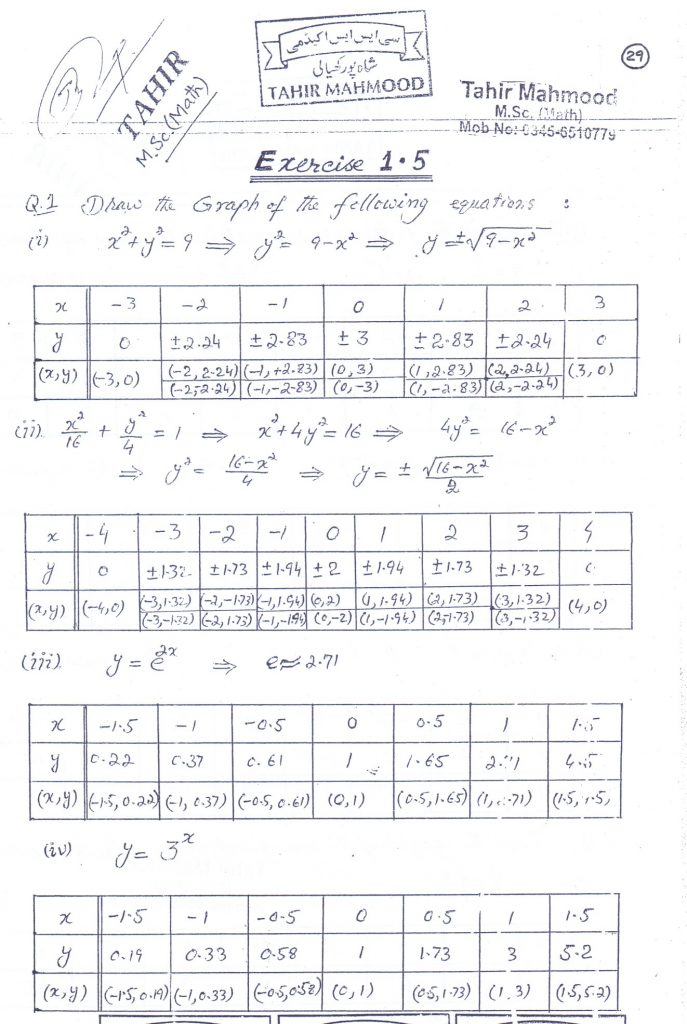 29
TAHIR
M.Sc.(Math)
سی ایس ایس اکیڈمی
شاہ پور کنجالی
TAHIR MAHMOOD
Tahir Mahmood
M.Sc. (Math)
Mob No: 0345-6510779
Exercise 1.5
Q.1 Draw the Graph of the following equations :
(i) x²+y²=9 ⇒ y²= 9-x² ⇒ y=±√9-x²
x -3 -2 -1 0 1 2 3
y 0 ±2.24 ±2.83 ±3 ±2.83 ±2.24 0
(x,y) (-3,0) (-2,2.24) (-1,+2.83) (0,3) (1,2.83) (2,2.24) (3,0)
(-2,-2.24) (-1,-2.83) (0,-3) (1,-2.83) (2,-2.24)
(ii) x²/16 + y²/4 = 1 ⇒ x²+4y²=16 ⇒ 4y²= 16-x²
⇒ y² = 16-x²/4 ⇒ y = ± √16-x²/2
x -4 -3 -2 -1 0 1 2 3 4
y 0 ±1.32 ±1.73 ±1.94 ±2 ±1.94 ±1.73 ±1.32 0
(x,y) (-4,0) (-3,1.32) (-2,-1.73) (-1,1.94) (0,2) (1,1.94) (2,1.73) (3,1.32) (4,0)
(-3,-1.32) (-2,1.73) (-1,-1.94) (0,-2) (1,-1.94) (2,-1.73) (3,-1.32)
(iii) y = e²ˣ ⇒ e≈2.71
x -1.5 -1 -0.5 0 0.5 1 1.5
y 0.22 0.37 0.61 1 1.65 2.71 4.5
(x,y) (-1.5,0.22) (-1,0.37) (-0.5,0.61) (0,1) (0.5,1.65) (1,2.71) (1.5,4.5)
(iv) y= 3ˣ
x -1.5 -1 -0.5 0 0.5 1 1.5
y 0.19 0.33 0.58 1 1.73 3 5.2
(x,y) (-1.5,0.19) (-1,0.33) (-0.5,0.58) (0,1) (0.5,1.73) (1.3) (1.5,5.2)